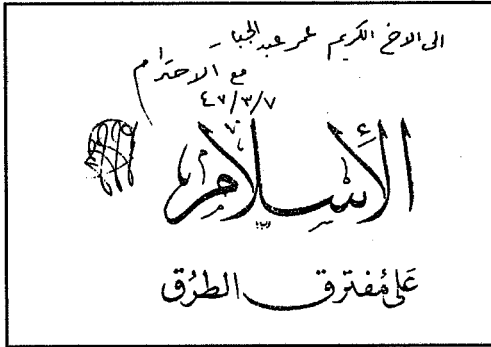 الى الاخ الكريم عمر عبد الجبار
مع الاحترام
٤٧/٣/٧
الإسلام
عَلى مُفترق الطرُق